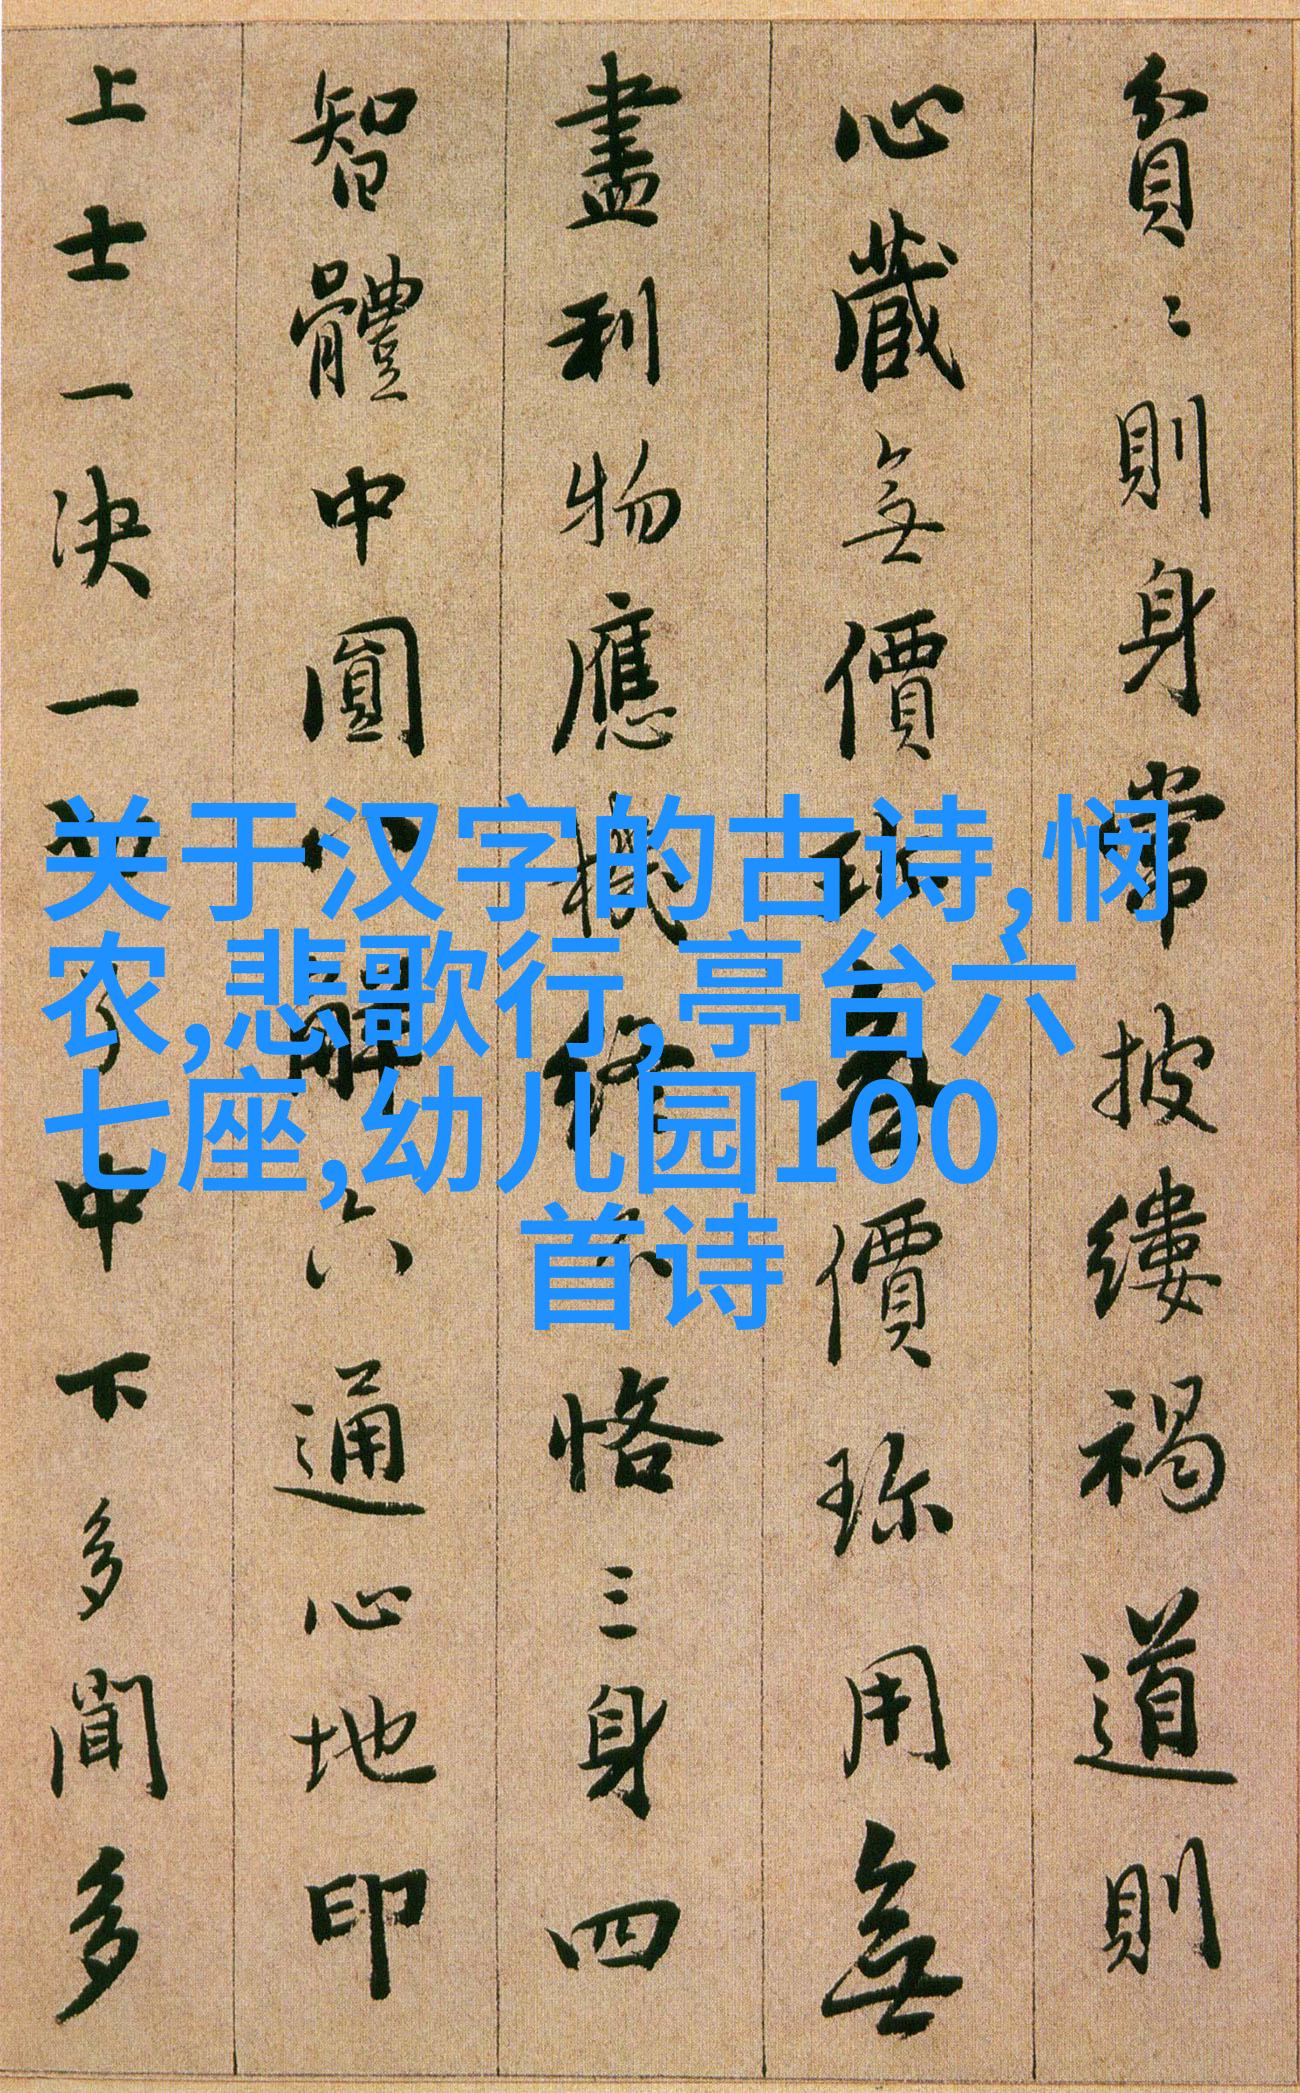 关于汉字的古诗,悯
农,悲歌行,亭台六
七座,幼儿园100
首诗
貧〻則身常披縷褐道則
心藏無價珎無價珎用無
盡利物應機終不恪三身四
智體中圓八解六通心地印
上士一決一中下多聞多